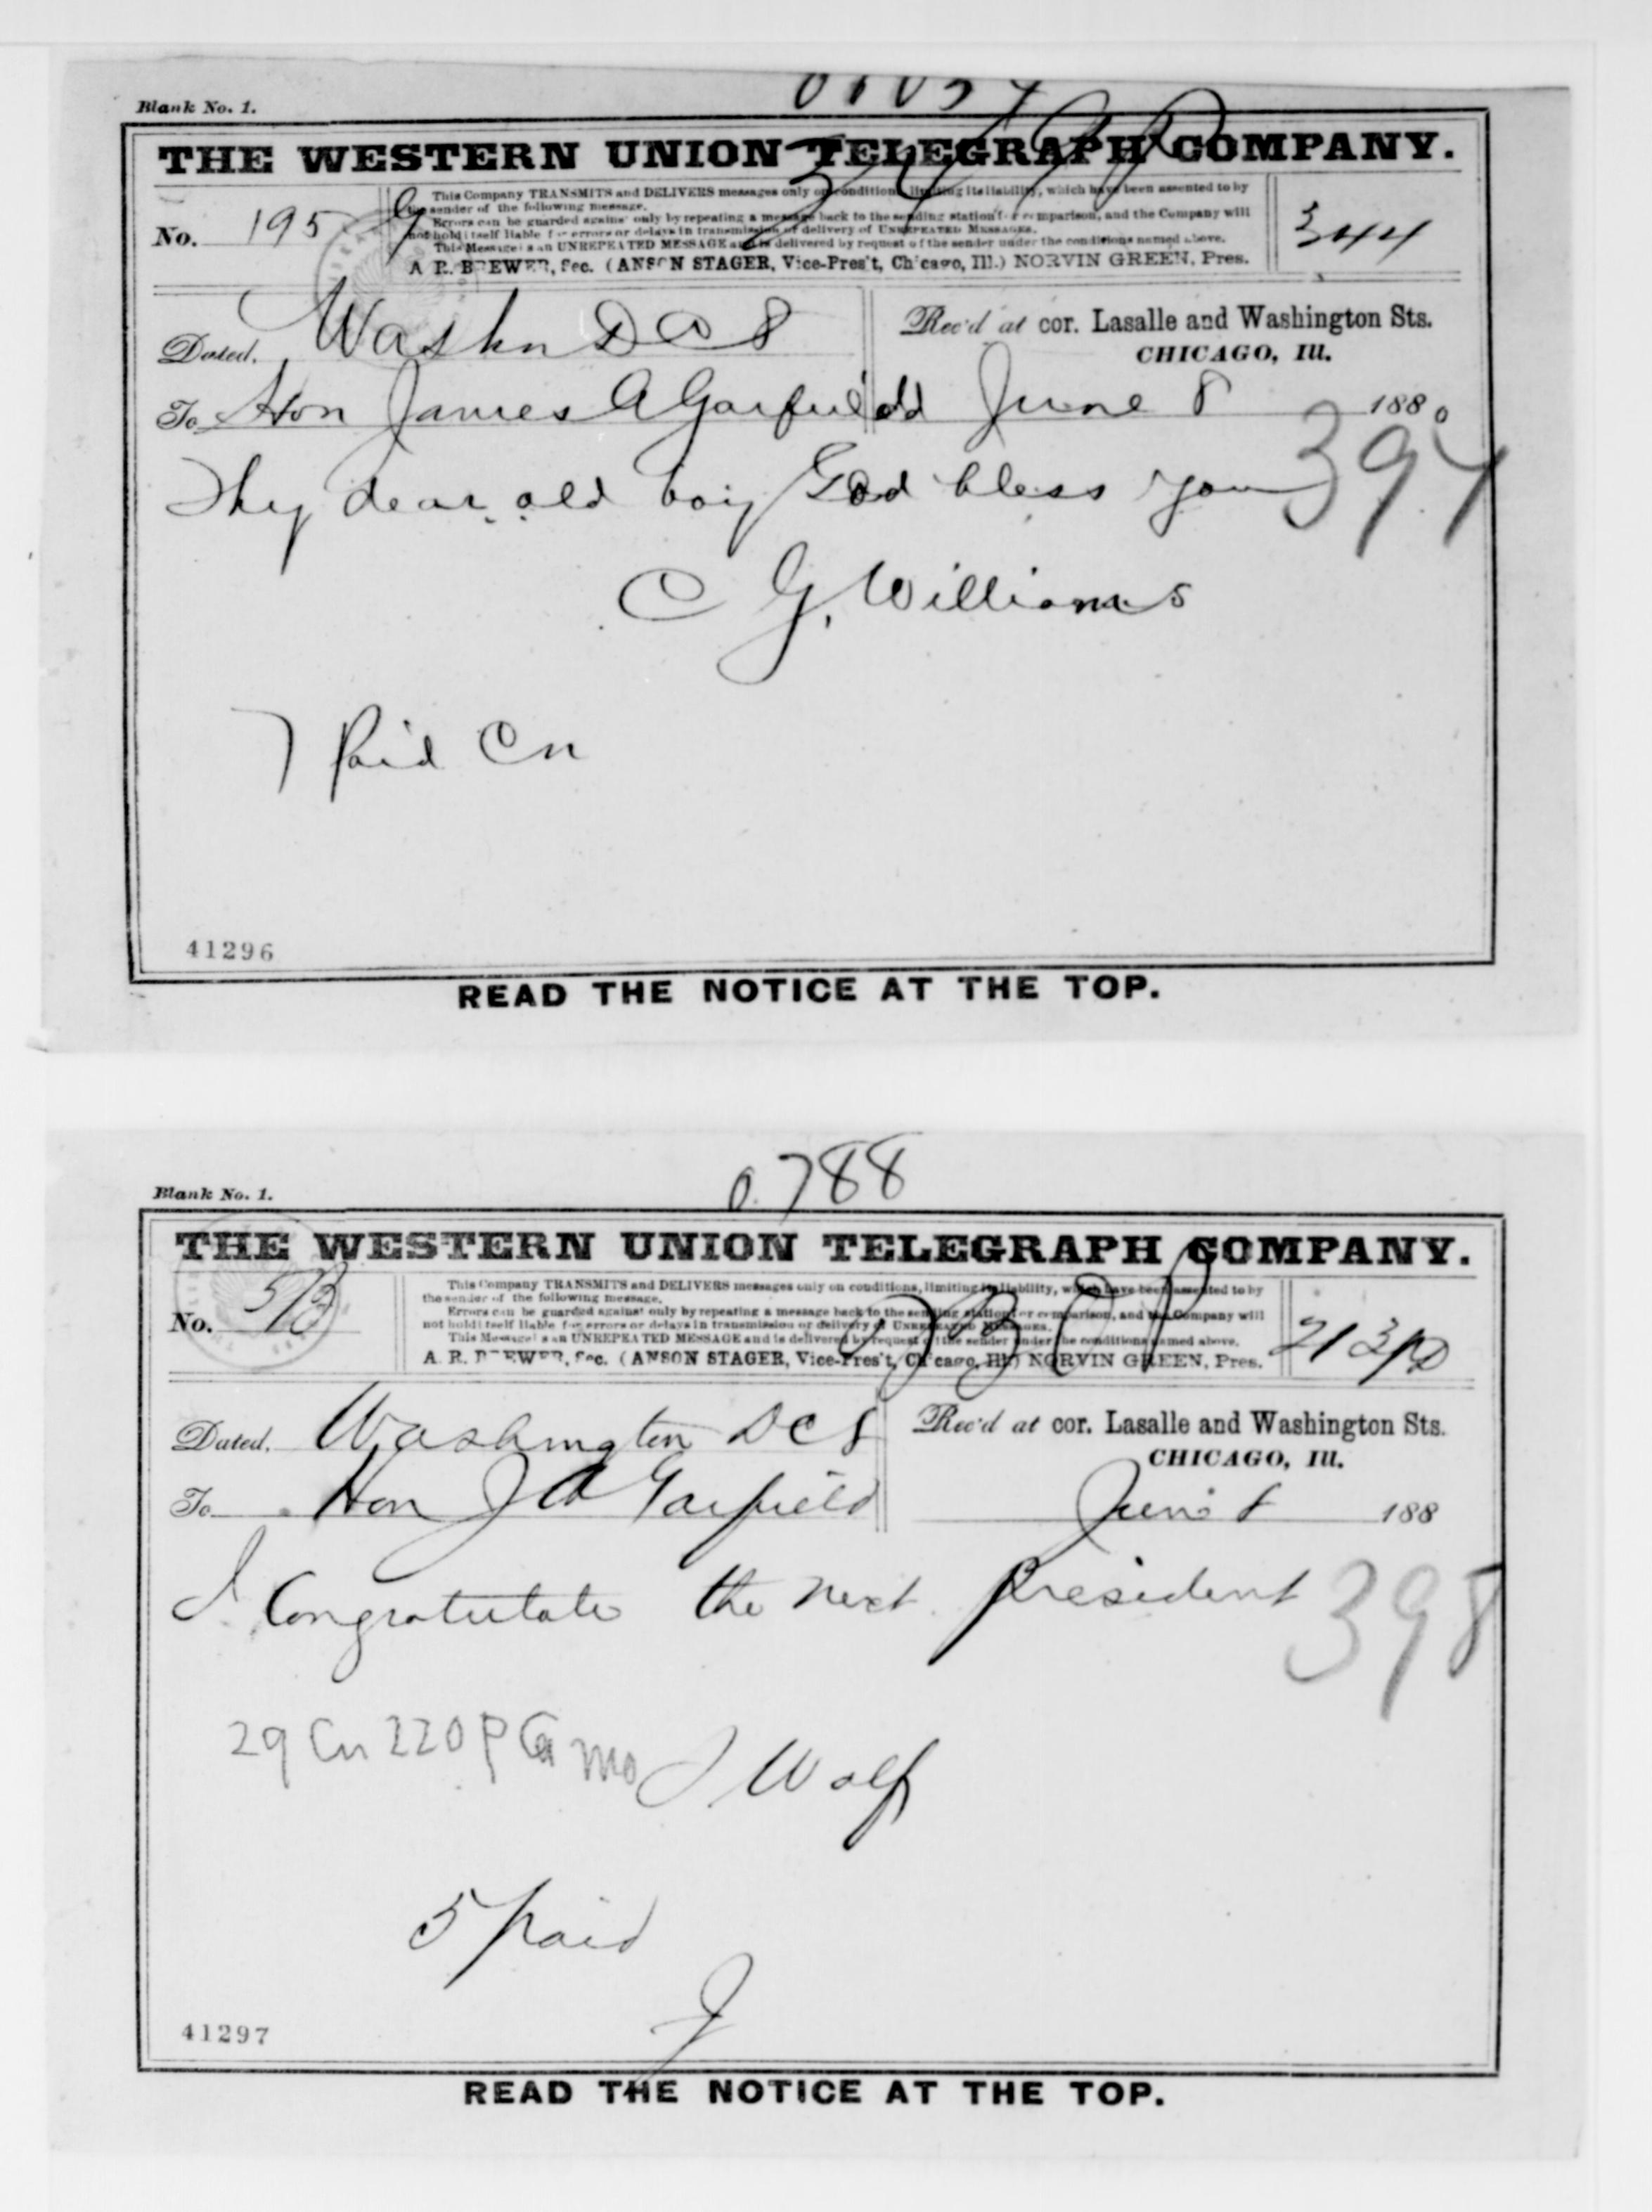 Blank No. 1.
THE WESTERN UNION TELEGRAPH COMPANY.
No. 195
This Company TRANSMITS and DELIVERS messages only on conditions, limiting its liability, which have been assented to by
the sender of the following message.
Errors can be guarded against only by repeating a message back to the sending station for comparison, and the Company will
not hold itself liable for errors or delays in transmission or delivery of UNREPEATED MESSAGES.
This Message is an UNREPEATED MESSAGE and is delivered by request of the sender under the conditions named above.
A. R. BREWER, Sec. (ANSON STAGER, Vice-Pres't, Chicago, Ill.) NORVIN GREEN, Pres.
344
Dated, Washn D C 8
Rec'd at cor. Lasalle and Washington Sts.
CHICAGO, Ill.
To Hon James A Garfield June 8 1880
397
dear old boy God bless you
C G. Williams
7 Paid Cn
41296
READ THE NOTICE AT THE TOP.
788
Blank No. 1.
THE WESTERN UNION TELEGRAPH COMPANY.
No.
This Company TRANSMITS and DELIVERS messages only on conditions, limiting its liability, which have been assented to by
the sender of the following message.
Errors can be guarded against only by repeating a message back to the sending station for comparison, and the Company will
not hold itself liable for errors or delays in transmission or delivery of UNREPEATED MESSAGES.
This Message is an UNREPEATED MESSAGE and is delivered by request of the sender under the conditions named above.
A. R. BREWER, Sec. (ANSON STAGER, Vice-Pres't, Chicago, Ill.) NORVIN GREEN, Pres.
Dated, Washington DC 8
Rec'd at cor. Lasalle and Washington Sts.
CHICAGO, Ill.
To Hon J A Garfield June 8 188
I Congratulate the next President
398
29 Cn 220 P
S Wolf
5 paid
J
41297
READ THE NOTICE AT THE TOP.